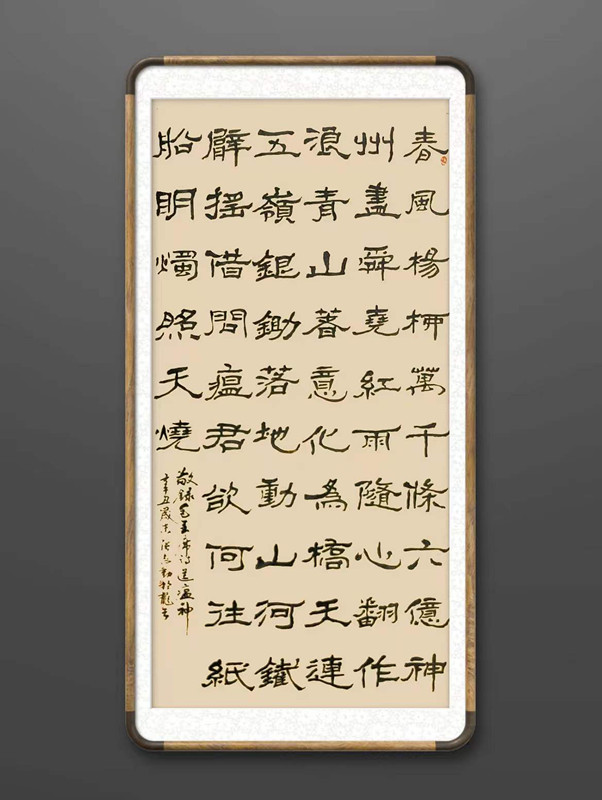 春風楊柳萬千條六億神
州盡舜堯紅雨隨心翻作
浪青山著意化為橋天連
五嶺銀鋤落地動山河鐵
臂摇借問瘟君欲何往紙
船明燭照天燒
敬録毛主席詩送瘟神
辛丑歲末